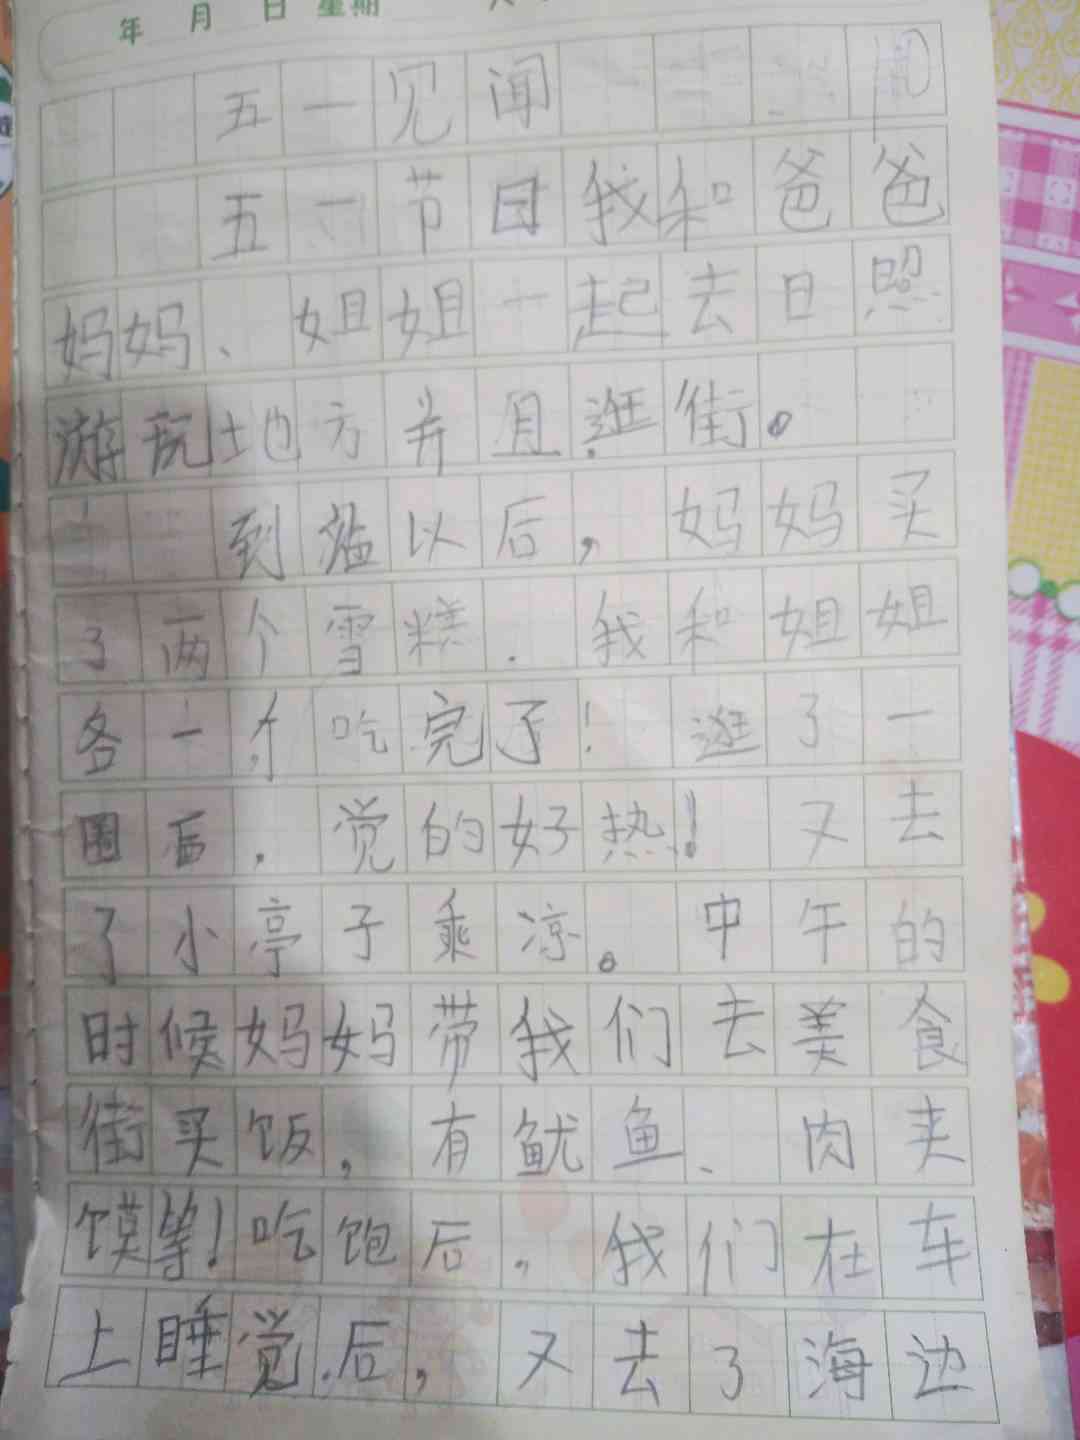 年 月 日 星期
五一见闻
五一节日我和爸爸
妈妈、姐姐一起去日照
游玩地方并且逛街。
到站以后，妈妈买
了两个雪糕.我和姐姐
各一个吃完了！逛了一
圈后，觉的好热！又去
了小亭子乘凉。中午的
时候妈妈带我们去美食
街买饭，有鱿鱼、肉夹
馍等！吃饱后，我们在车
上睡觉后，又去了海边